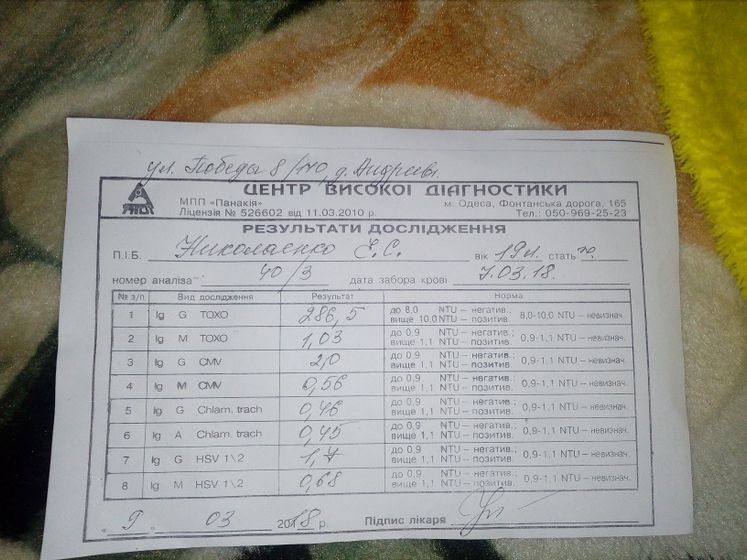 ул. Победы 8/
ЦЕНТР ВИСОКОЇ ДІАГНОСТИКИ
МПП "Панакія" м. Одеса, Фонтанська дорога, 165
Ліцензія № 526602 від 11.03.2010 р. Тел.: 050-969-25-23
РЕЗУЛЬТАТИ ДОСЛІДЖЕННЯ
П.І.Б. Николаенко Е.С. вік 19л. стать
номер аналіза 40/3 дата забора крові 7.03.18.
№ з/п Вид дослідження Результат Норма
1 Ig G TOXO 286,5 до 8,0 NTU – негатив.; 8,0-10,0 NTU – невизнач.
вище 10,0 NTU – позитив.
2 Ig M TOXO 1,03 до 0,9 NTU – негатив.; 0,9-1,1 NTU – невизнач.
вище 1,1 NTU – позитив.
3 Ig G CMV 2,0 до 0,9 NTU – негатив.; 0,9-1,1 NTU – невизнач.
вище 1,1 NTU – позитив.
4 Ig M CMV 0,56 до 0,9 NTU – негатив.; 0,9-1,1 NTU – невизнач.
вище 1,1 NTU – позитив.
5 Ig G Chlam. trach 0,46 до 0,9 NTU – негатив.; 0,9-1,1 NTU – невизнач.
вище 1,1 NTU – позитив.
6 Ig A Chlam. trach 0,45 до 0,9 NTU – негатив.; 0,9-1,1 NTU – невизнач.
вище 1,1 NTU – позитив.
7 Ig G HSV 1\2 до 0,9 NTU – негатив.; 0,9-1,1 NTU – невизнач.
вище 1,1 NTU – позитив.
8 Ig M HSV 1\2 0,68 до 0,9 NTU – негатив.; 0,9-1,1 NTU – невизнач.
вище 1,1 NTU – позитив.
9 03 2018 р. Підпис лікаря